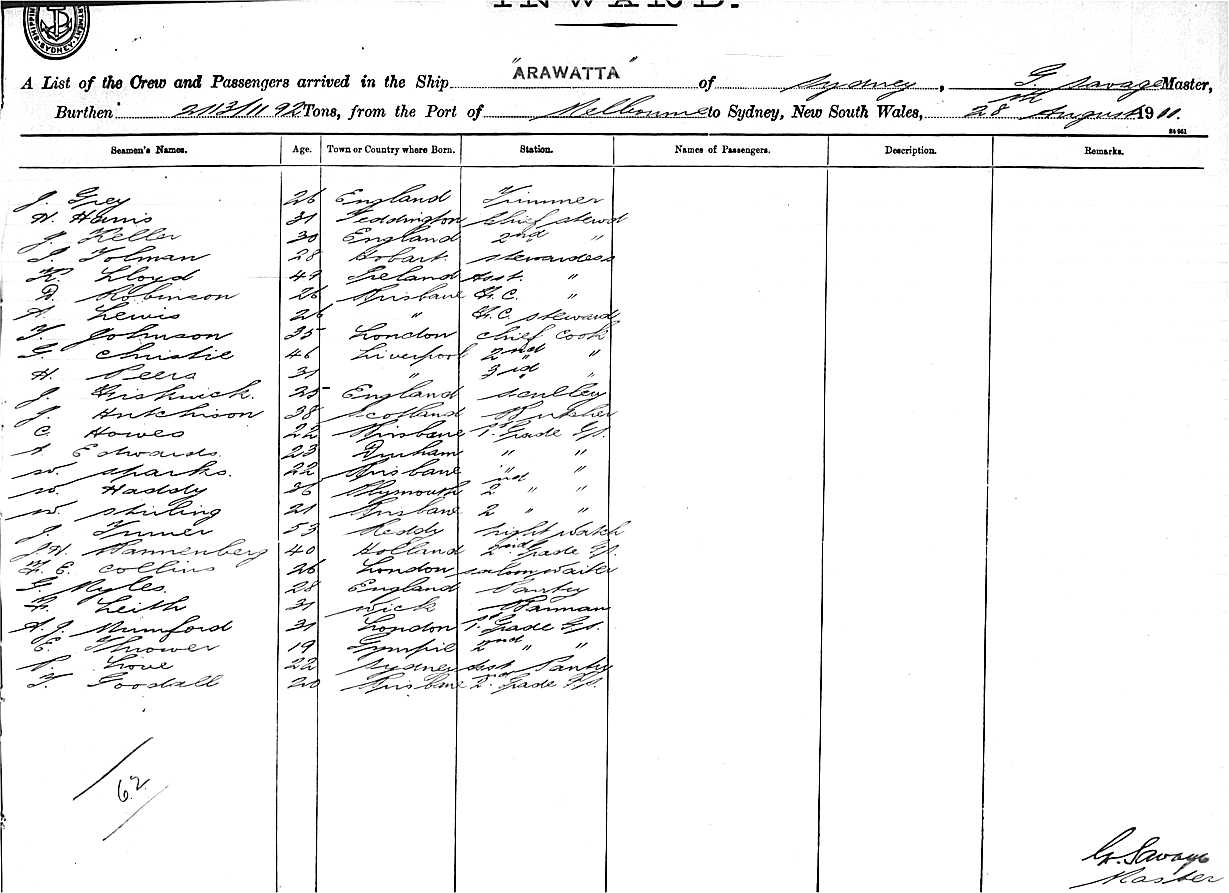 INWARD.
SHIPPING SYDNEY
"ARAWATTA"
A List of the Crew and Passengers arrived in the Ship of Sydney, G. Savage Master,
Burthen 2113/1192 Tons, from the Port of Melbourne to Sydney, New South Wales, 28th August 1911.
Seamen's Names. Age. Town or Country where Born. Station. Names of Passengers. Description. Remarks.
J. Grey 26 England Trimmer
W. Harris 31 Teddington Chief stewd
J. Keller 30 England 2nd "
Tolman 28 Hobart. stewardess
R. Lloyd 49 Ireland Asst. "
D. Robinson 26 Brisbane F.C. "
A. Lewis 26 " F.C. steward
T. Johnson 35 London chief cook
G. Christie 46 Liverpool 2nd "
H. Peers 31 " 3rd "
J. Fishwick. 25 England sculley
J. Hutchison 38 Scotland Butcher
C. Howes 22 Brisbane 1st Grade
Edwards. 23 Durham " "
W. Sparks. 22 Brisbane " "
W. Haddy 36 Plymouth 2nd " "
W. Stirling 21 Brisbane 2 " "
J. 53 night watch
J.H. Pannenberg 40 Holland 2nd Grade
F. E. Collins 26 London saloon waiter
G. Myles. 28 England Pantry
F. Leith 31 Wick Barman
A.J. Mumford 31 London 1st Grade
E. Thrower 19 Gympie 2nd " "
Love 22 Sydney Pantry
T. Goodall 20 Brisbane 2nd Grade
62
G. Savage
Master